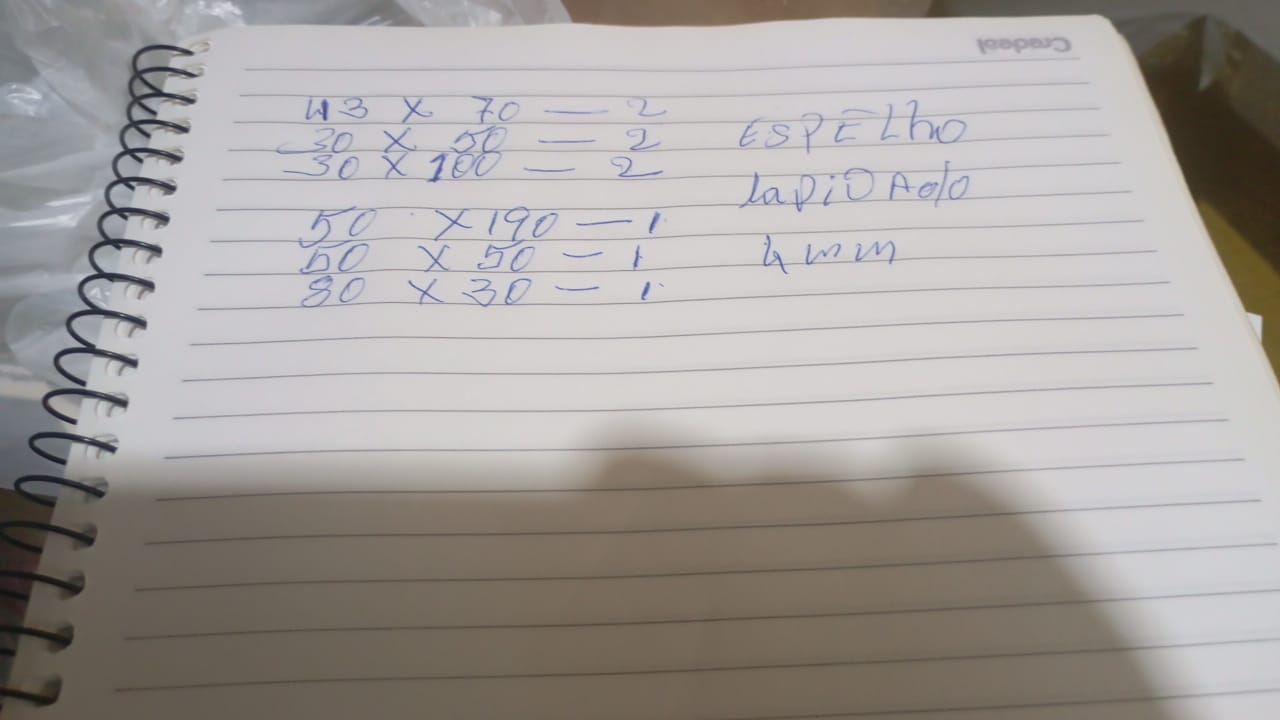 Credeal
43 X 70 — 2
30 X 50 — 2
30 X 100 — 2
50 X 190 — 1
50 X 50 — 1
80 X 30 — 1
ESPELho
lapiDAdo
4mm